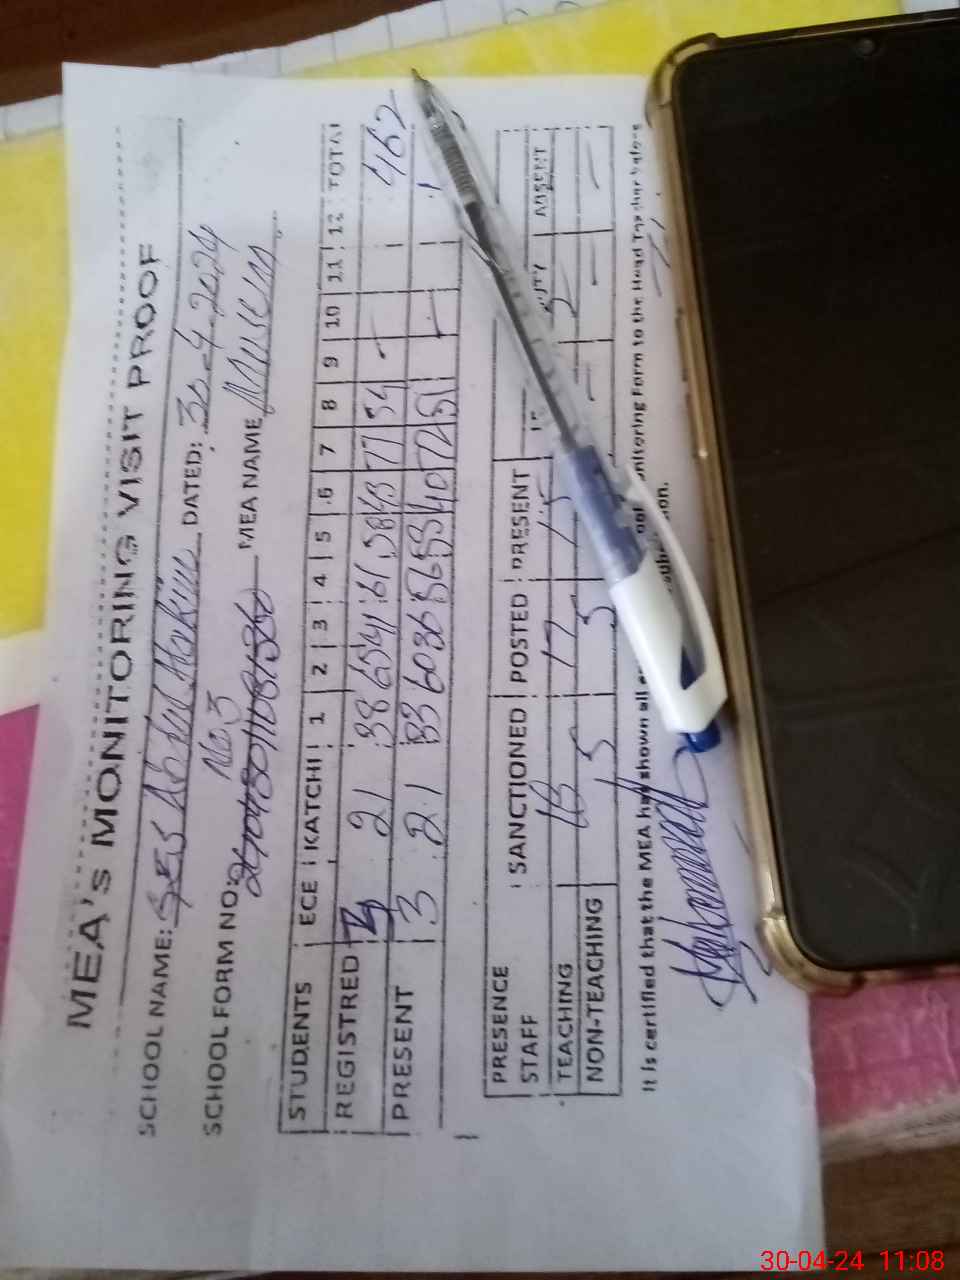 MEA's MONITORING VISIT PROOF
SCHOOL NAME: GES Abdul Hakim DATED: 30.4.2024
No 3
SCHOOL FORM NO: MEA NAME
STUDENTS ECE KATCHI 1 2 3 4 5 6 7 8 9 10 11 12 TOTAL
REGISTRED 3 21 38 65 41 61 58 43 77 54 - 462
PRESENT 3 21 33 60 36 56 53 40 72 51 -
PRESENCE
STAFF SANCTIONED POSTED PRESENT ABSENT
TEACHING 16 17 15 2 -
NON-TEACHING 5 5 - - -
It is certified that the MEA has shown all Monitoring Form to the Head Teacher before
submission.
30-04-24 11:08